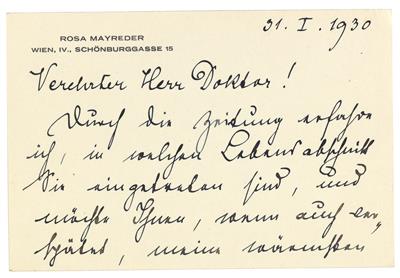 ROSA MAYREDER
WIEN, IV., SCHÖNBURGGASSE 15
31. I. 1930
Verehrter Herr Doktor!
Durch die Zeitung erfahre
ich, in welchen Lebensabschnitt
Sie eingetreten sind, und
möchte Ihnen, wenn auch ver-
spätet, meine wärmsten